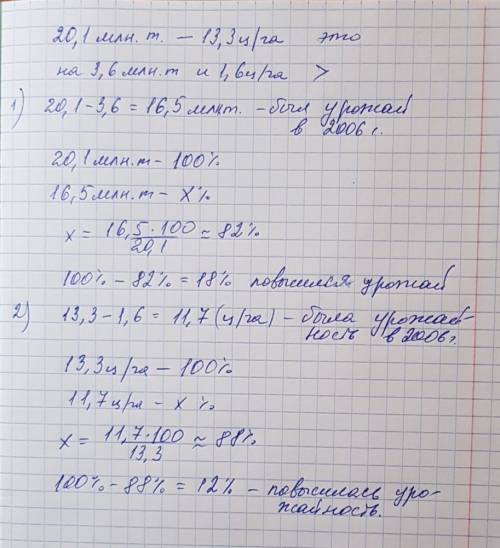 20,1 млн. т. – 13,3 ц/га это
на 3,6 млн.т и 1,6 ц/га >
1) 20,1-3,6 = 16,5 млн т. - был урожай
в 2006 г.
20,1 млн. т - 100%
16,5 млн. т - х%
х = 16,5·100/20,1 ≈ 82%
100% - 82% = 18% повысился урожай
2) 13,3-1,6 = 11,7 (ц/га) - была урожай-
ность в 2006 г.
13,3 ц/га - 100%
11,7 ц/га - х %
х = 11,7·100/13,3 ≈ 88%
100% - 88% = 12% - повысилась уро-
жайность.